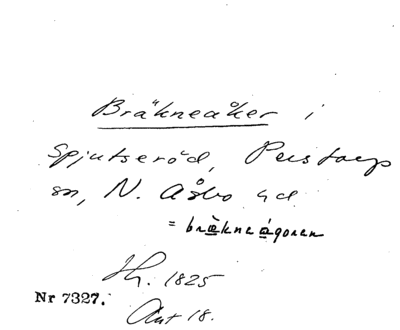 Bräkneåker i
Spjutseröd, Perstorp
sn, N. Åsbo hd
= bräkneágoren
Hh. 1825
Nr 7327.
Akt 18.